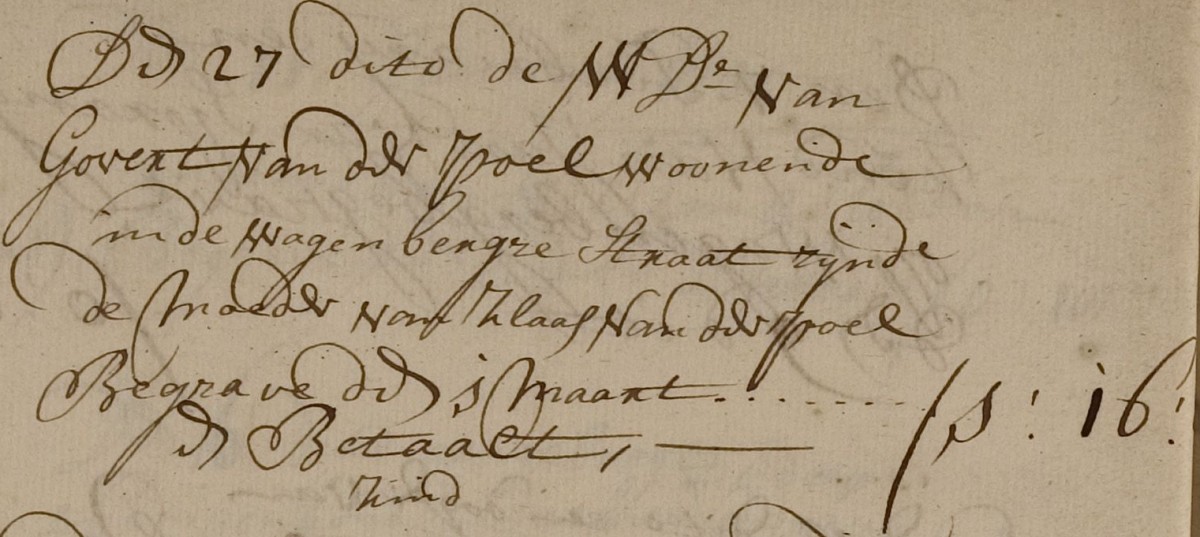 Dd 27 dito de Wde van
Govert van der poel woonende
in de wagen bergze straat zijnde
de moeder van klaas van der poel
Begrave dd j maart . . . . . . .
d Betaalt, —
kind